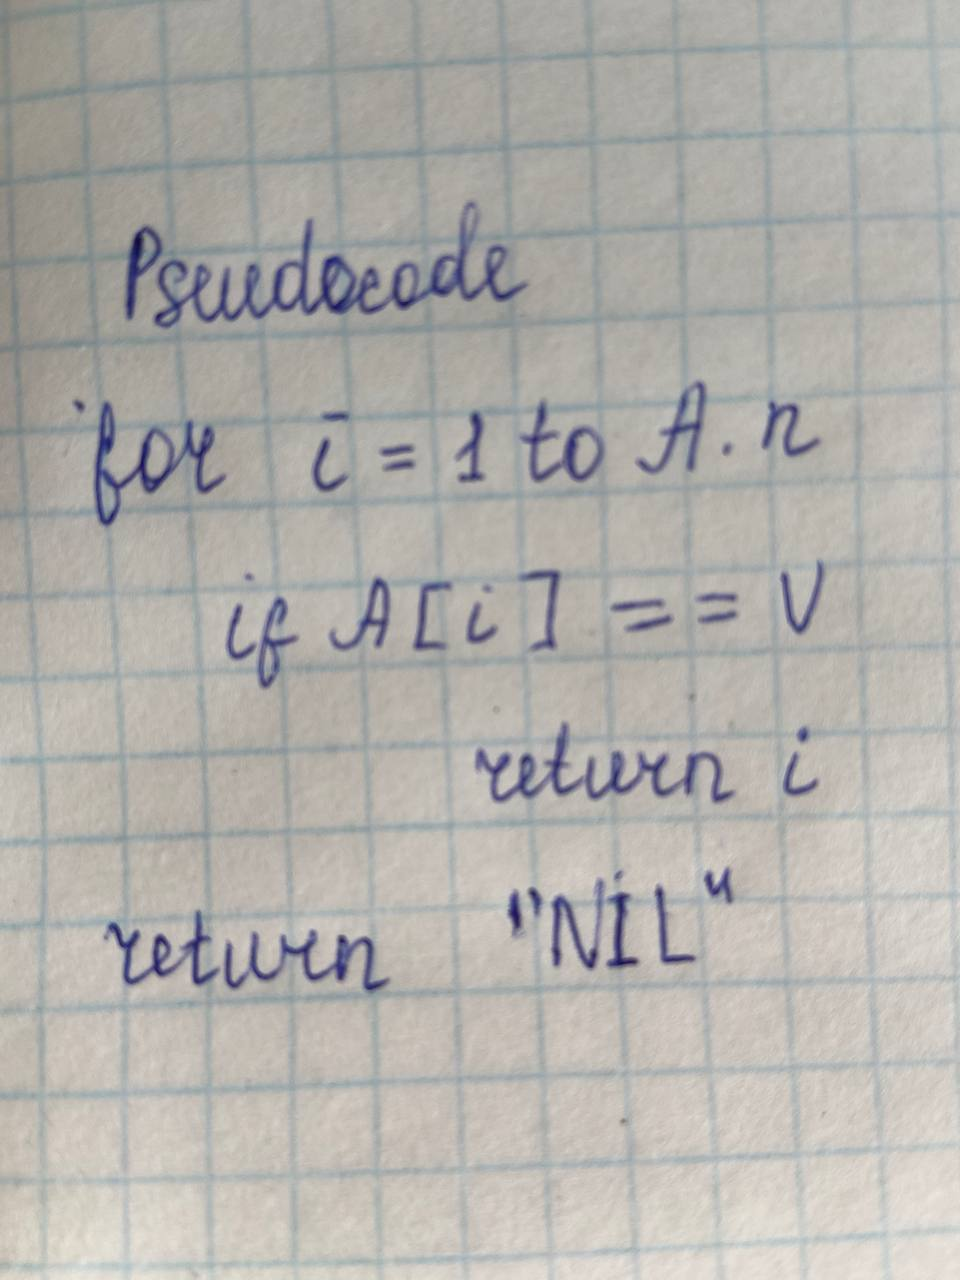 Pseudocode
for i = 1 to A.n
if A[i] == V
return i
return "NIL"